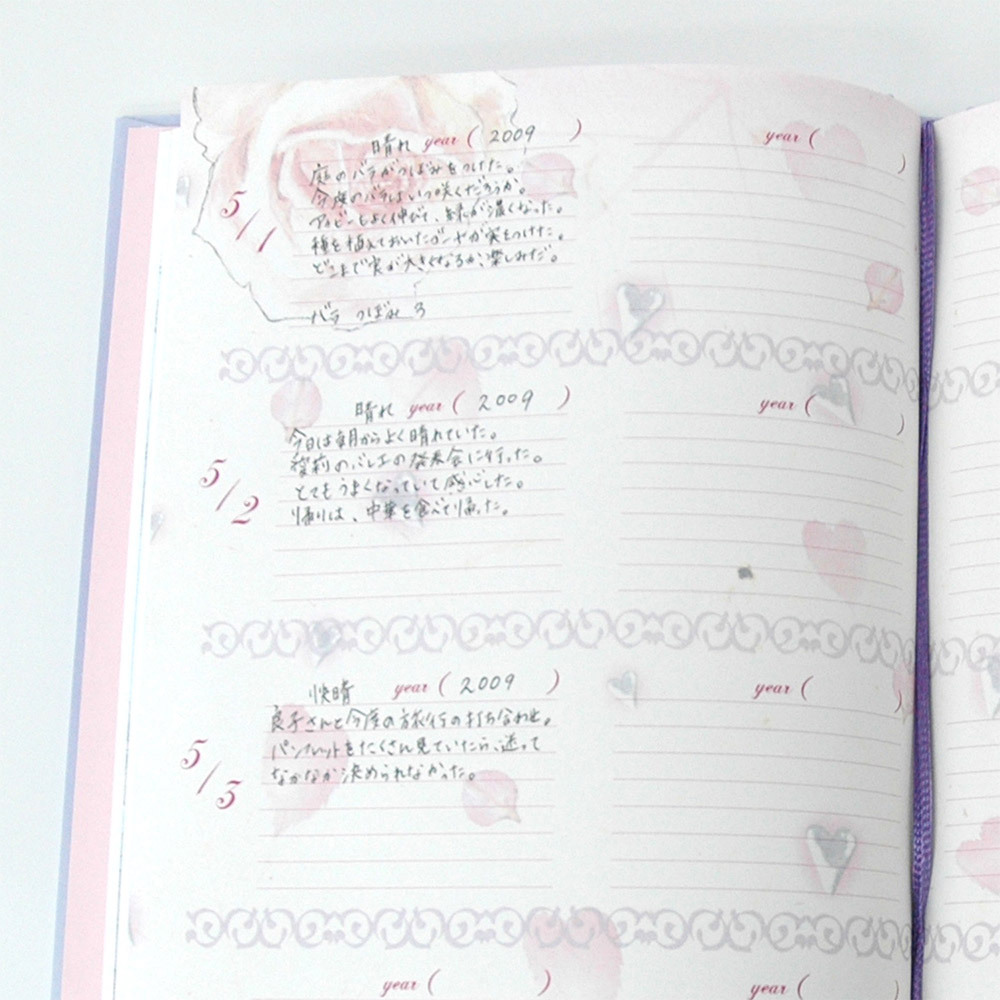 晴れ year ( 2009 )
庭のバラがつぼみをつけた。
今度のバラはいつ咲くだろうか。
アイビーもよく伸びて、緑が濃くなった。
種を植えておいたゴーヤが実をつけた。
どこまで実が大きくなるか、楽しみだ。
バラ つぼみ 3
5/1
year ( )
晴れ year ( 2009 )
今日は毎月からよく晴れていた。
のバレエの発表会に行った。
とてもうまくなっていて感心した。
帰りは、中華を食べて帰った。
5/2
year ( )
快晴 year ( 2009 )
良子さんと今度の旅行の打ち合わせ。
パンフレットをたくさん見ていたら、迷って
なかなか決められなかった。
5/3
year ( )
year ( )
year (